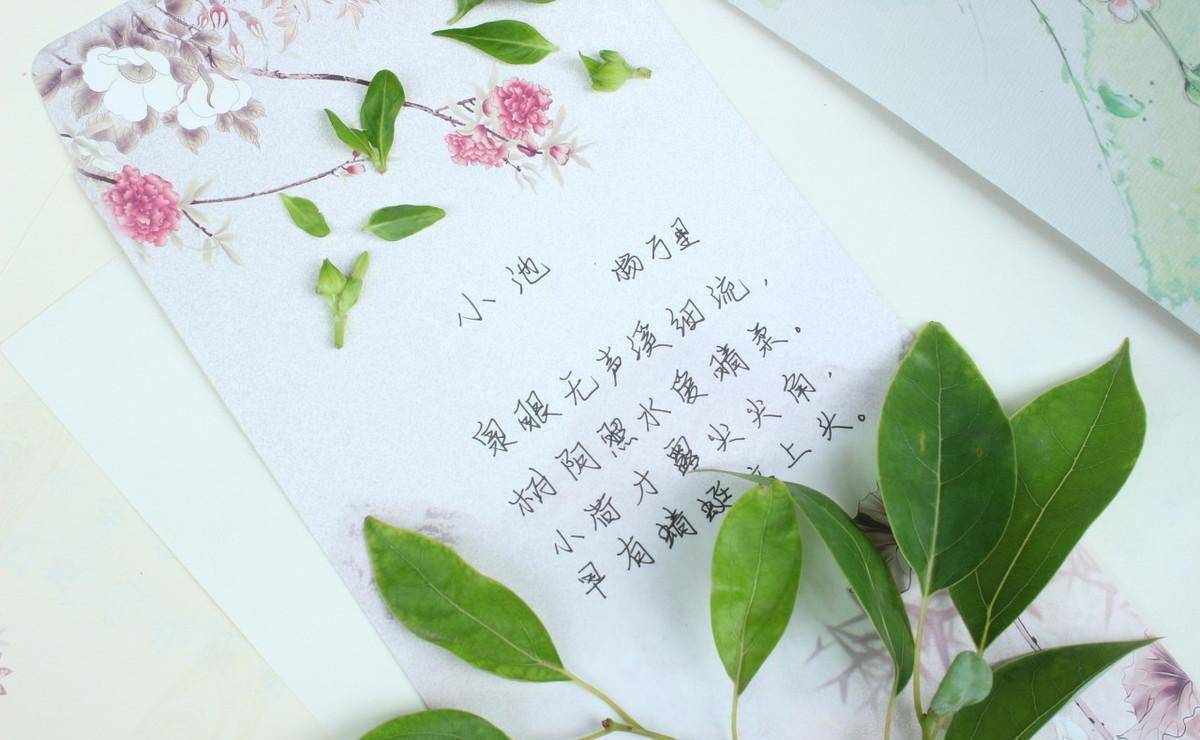 小池 杨万里
泉眼无声溪细流，
树阴照水爱晴柔。
小荷才露尖尖角，
早有蜻蜓上头。